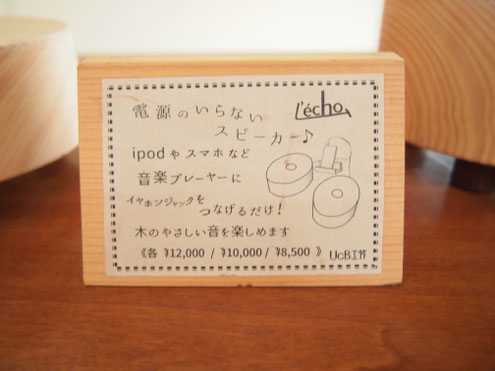 電源のいらない
スピーカー♪
L'écho
ipodやスマホなど
音楽プレーヤーに
イヤホンジャックを
つなげるだけ!
木のやさしい音を楽しめます
《各 ¥12,000 / ¥10,000 / ¥8,500 》
UcB工作